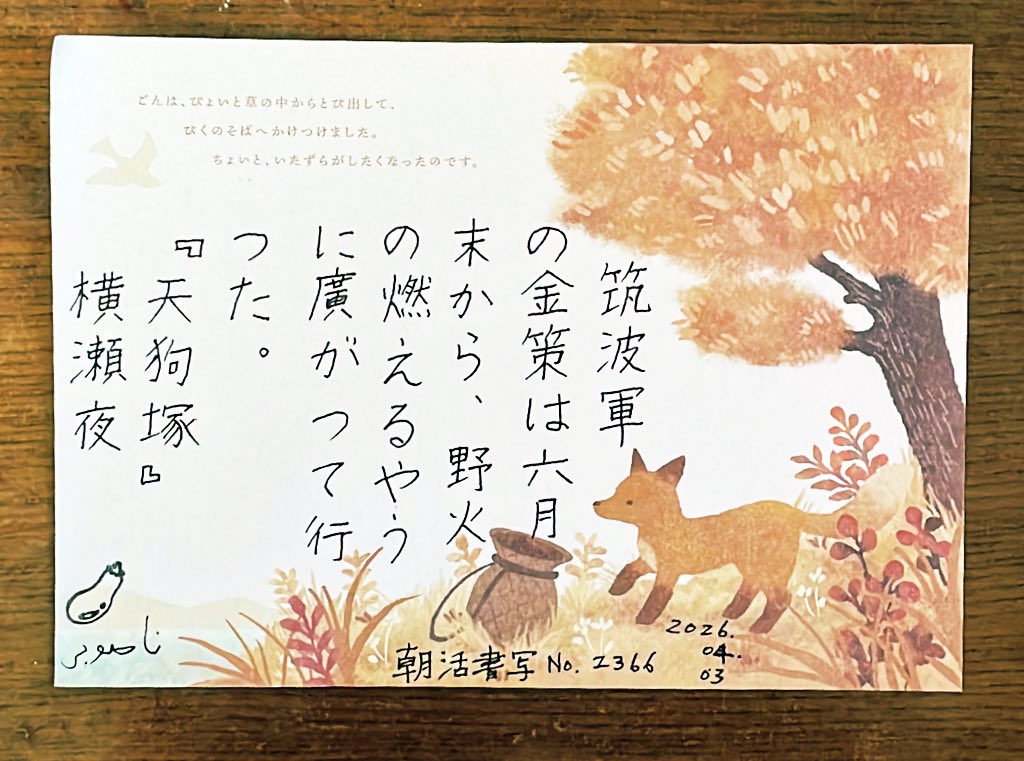 ごんは、ぴょいと草の中からとび出して、
びくのそばへかけつけました。
ちょいと、いたずらがしたくなったのです。
筑波軍
の金策は六月
末から、野火
の燃えるやう
に廣がつて行
つた。
『天狗塚』
横瀬夜
朝活書写 No. 2366
2026.
04.
03